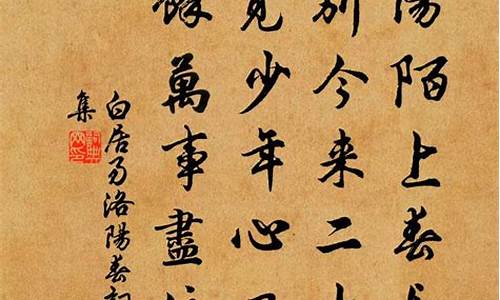 陽陌上春
別今来二
覓少年心
餘萬事盡
白居易洛陽春
集